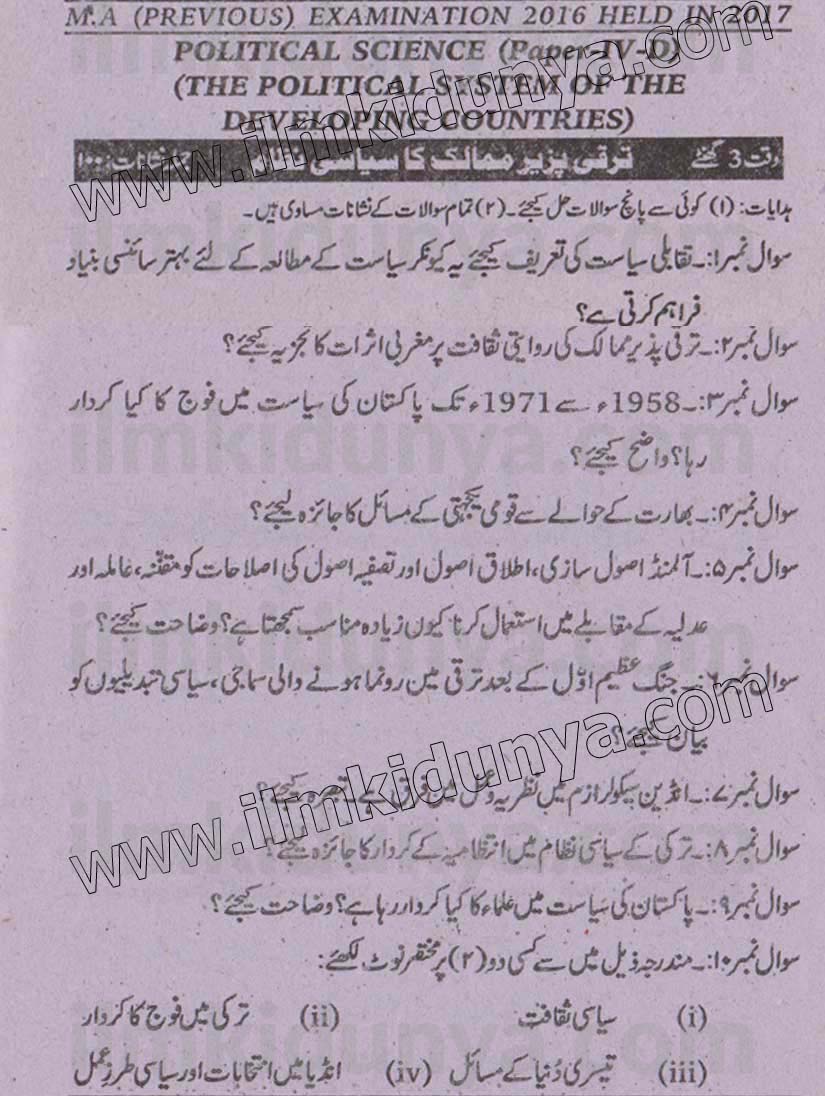 M.A (PREVIOUS) EXAMINATION 2016 HELD IN 2017
POLITICAL SCIENCE (Paper-IV-D)
(THE POLITICAL SYSTEM OF THE
DEVELOPING COUNTRIES)
وقت 3 گھنٹے ترقی پزیر ممالک کا سیاسی نظام کل نشانات: ۱۰۰
ہدایات: (۱) کوئی سے پانچ سوالات حل کیجئے۔ (۲) تمام سوالات کے نشانات مساوی ہیں۔
سوال نمبر۱:۔ تقابلی سیاست کی تعریف کیجئے یہ کیونکر سیاست کے مطالعہ کے لئے بہتر سائنسی بنیاد
فراہم کرتی ہے؟
سوال نمبر۲:۔ ترقی پذیر ممالک کی روایتی ثقافت پر مغربی اثرات کا تجزیہ کیجئے؟
سوال نمبر۳:۔ 1958ء سے 1971ء تک پاکستان کی سیاست میں فوج کا کیا کردار
رہا؟ واضح کیجئے؟
سوال نمبر۴:۔ بھارت کے حوالے سے قومی یکجہتی کے مسائل کا جائزہ لیجئے؟
سوال نمبر۵:۔ آلمنڈ اصول سازی، اطلاق اصول اور تصفیہ اصول کی اصلاحات کو مقننہ، عاملہ اور
عدلیہ کے مقابلے میں استعمال کرنا کیوں زیادہ مناسب سمجھتا ہے؟ وضاحت کیجئے؟
سوال نمبر۶:۔ جنگ عظیم اوّل کے بعد ترقی مین رونما ہونے والی سماجی، سیاسی تبدیلیوں کو
بیان کیجئے؟
سوال نمبر۷:۔ انڈین سیکولرازم میں نظریہ وعمل میں فرق ہے۔ تبصرہ کیجئے؟
سوال نمبر۸:۔ ترکی کے سیاسی نظام میں انتظامیہ کے کردار کا جائزہ لیجئے؟
سوال نمبر۹:۔ پاکستان کی سیاست میں علماء کا کیا کردار رہا ہے؟ وضاحت کیجئے؟
سوال نمبر۱۰:۔ مندرجہ ذیل میں سے کسی دو (۲) پر مختصر نوٹ لکھئے:
(i) سیاسی ثقافت (ii) ترکی میں فوج کا کردار
(iii) تیسری دُنیا کے مسائل (iv) انڈیا میں انتخابات اور سیاسی طرزِ عمل
www.ilmkidunya.com
www.ilmkidunya.com
ilmkidunya.com
ilmkidunya.com
ilmkidunya.com
ilmkidunya.com
ilmkidunya.com